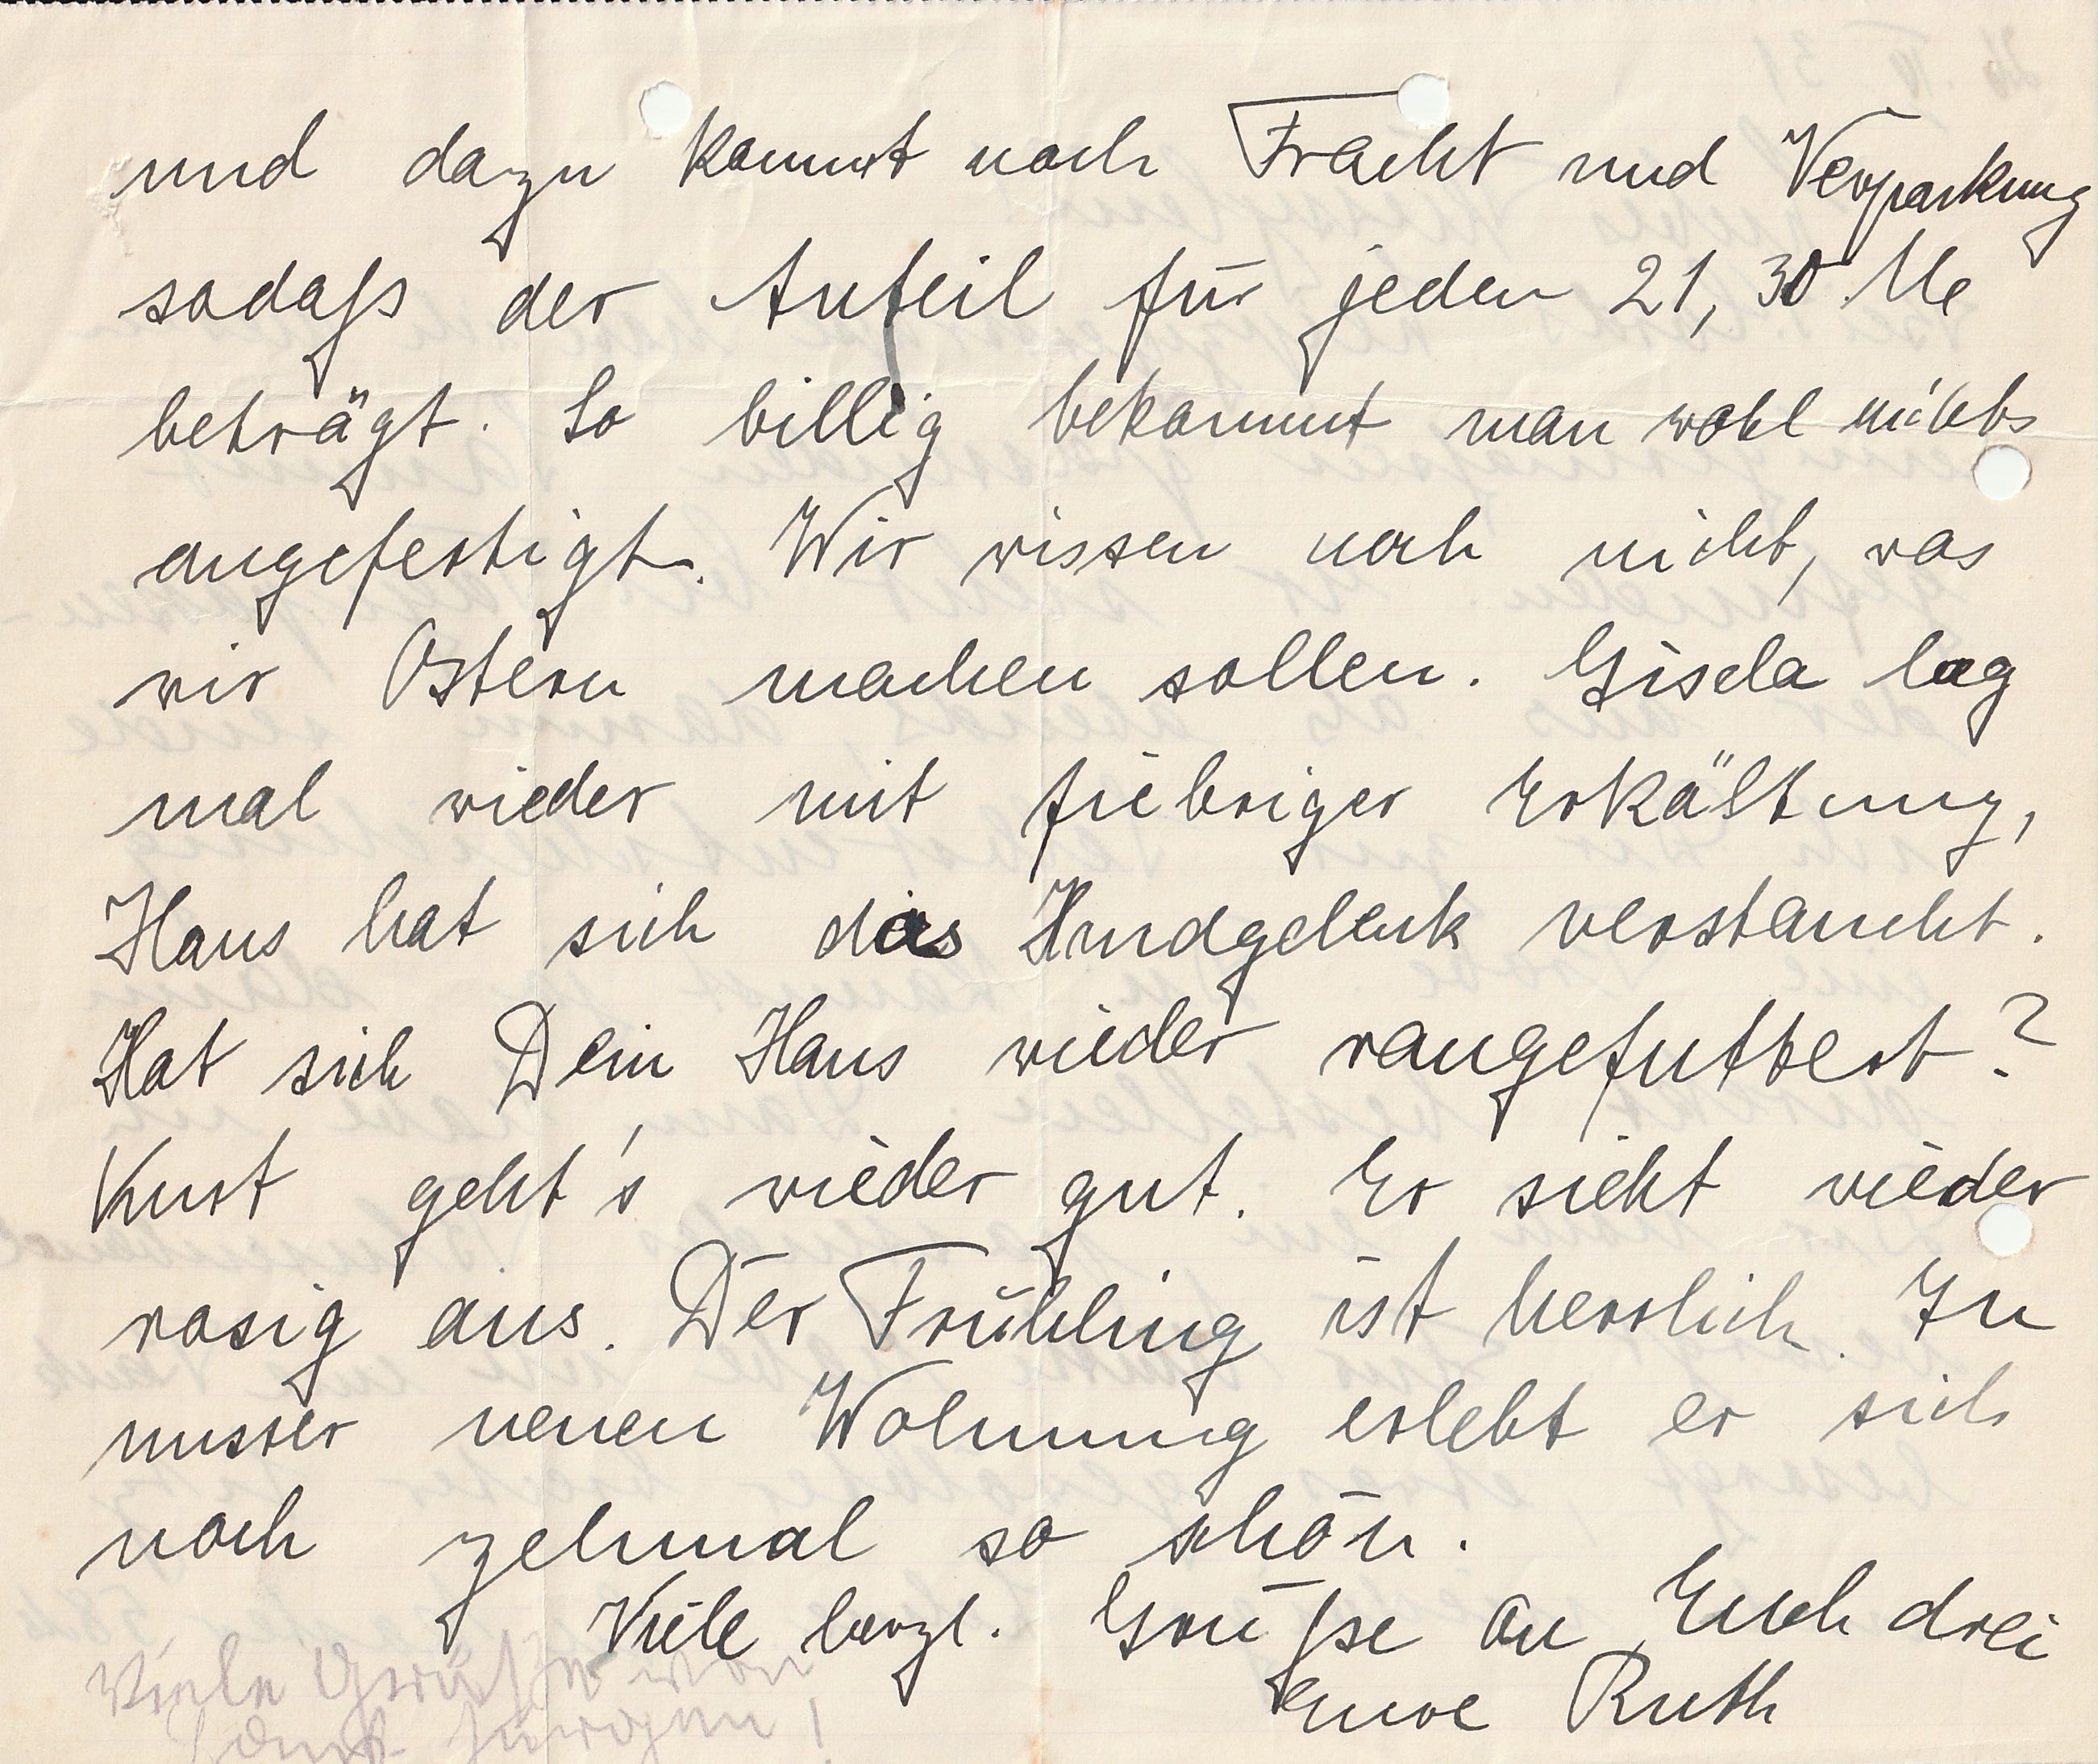 und dazu kommt noch Fracht und Verpackung
sodaß der Anteil für jeden 21,30 M
beträgt. So billig bekommt man wohl nichts
angefertigt. Wir wissen noch nicht, was
wir Ostern machen sollen. Gisela lag
mal wieder mit fiebriger Erkältung,
Hans hat sich das Handgelenk verstaucht.
Hat sich Dein Hans wieder rangefuttert?
Kurt geht's wieder gut. Er sieht wieder
rosig aus. Der Frühling ist herrlich. In
unsrer neuen Wohnung erlebt er sich
noch zehnmal so schön.
Viele herzl. Grüße an Euch drei
Eure Ruth
Viele Grüße von
Jürgen!